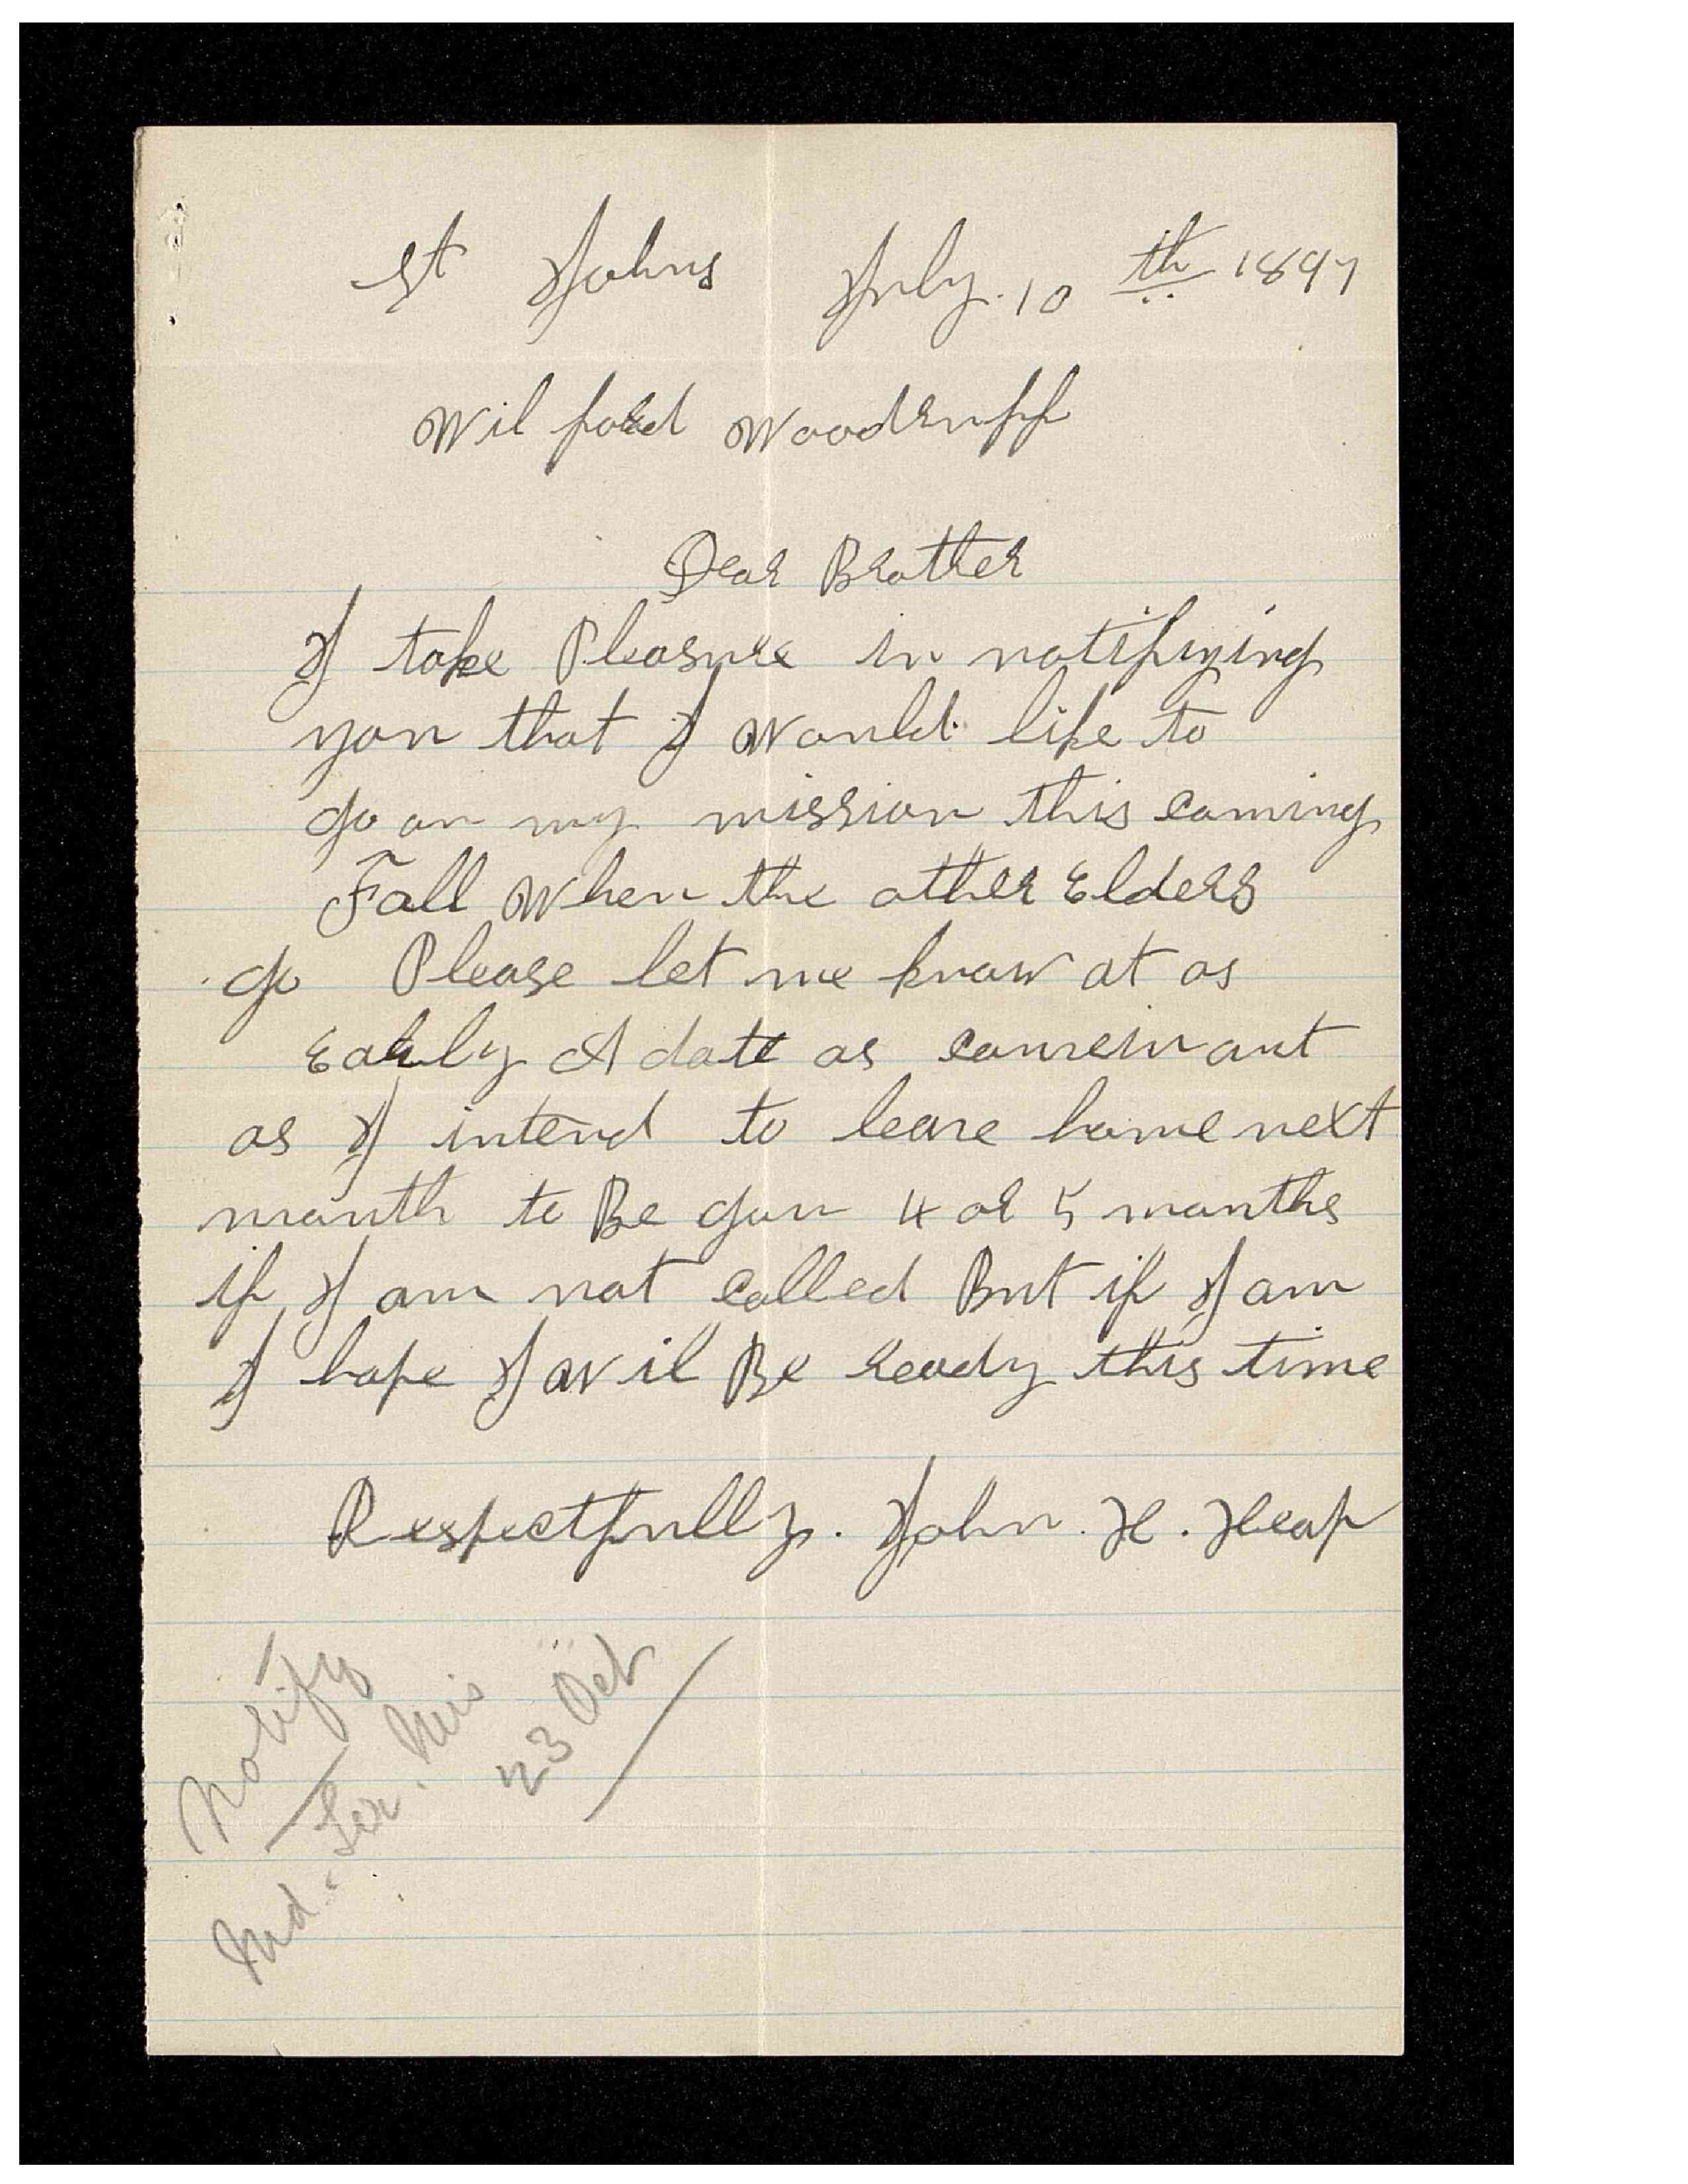 St Johns July. 10th 1897
Wilford Woodruff
Dear Brother
I take Pleasure in notifying
you that I Would like to
go on my mission this coming
Fall When the other Elders
go Please let me know at as
Early A date as conveinant
as I intend to leave home next
month to Be gon 4 or 5 months
if I am not called But if I am
I hope I Wil Be ready this time
Respectfully. John. H. Heap
Notify
Ind. Ter. Mis
23 Oct